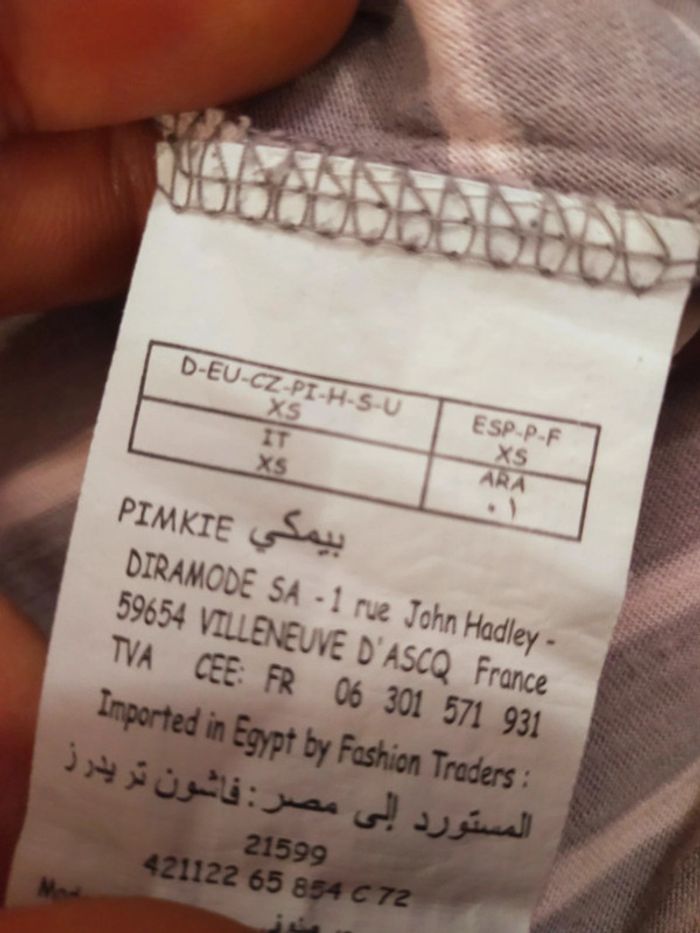 D-EU-CZ-PI-H-S-U
XS
ESP-P-F
XS
IT
XS
ARA
٠١
PIMKIE بيمكي
DIRAMODE SA - 1 rue John Hadley -
59654 VILLENEUVE D'ASCQ France
TVA CEE: FR 06 301 571 931
Imported in Egypt by Fashion Traders :
المستورد إلى مصر : فاشون تريدرز
21599
421122 65 854 C 72